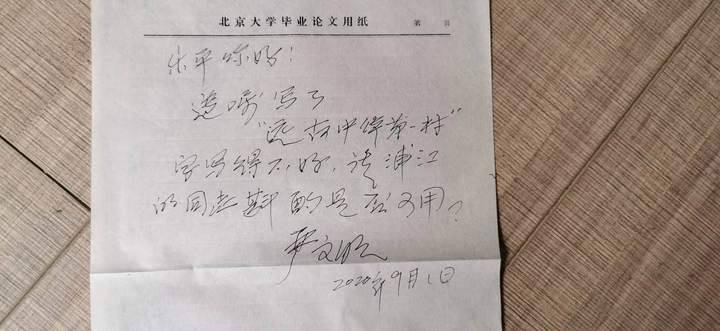 北京大学毕业论文用纸 第 页
乐平你好！
遵嘱写了
"远古中华第一村"
字写得不好，请浦江
的同志斟酌是否可用？
严文明
2020年9月1日